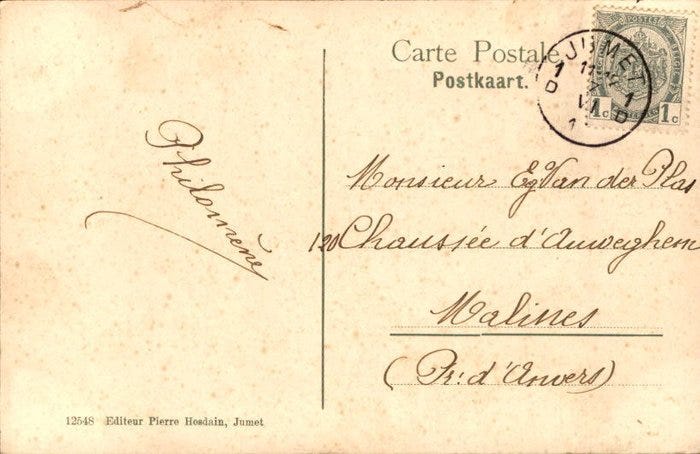 Carte Postale
Postkaart.
JUMET
1 1
D D
VI
1c 1c
Philomène
Monsieur Eg Van der Plas
120 Chaussée d'Auweghem
Malines
(Pr: d'Anvers)
12548 Editeur Pierre Hosdain, Jumet